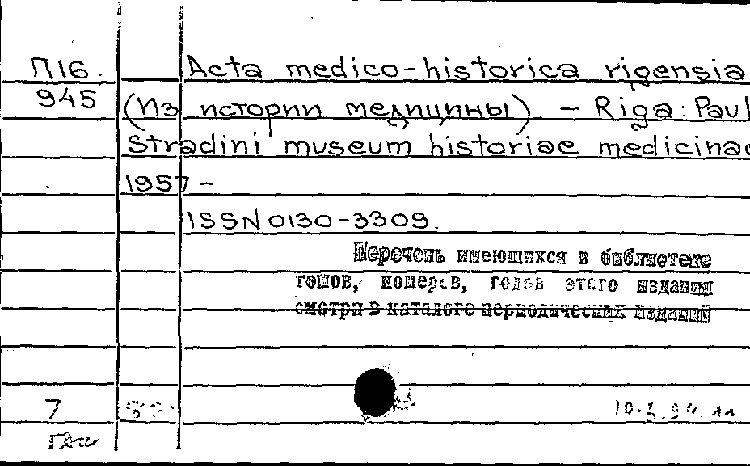 П16. Acta medico-historica rigensia
945 (Из истории медицины) – Riga: Paul
Stradini museum historiae medicinae
1957 –
ISSN 0130-3309.
Перечень имеющихся в библиотеке
томов, номеров, годов этого издания
смотри в каталоге периодических изданий
7